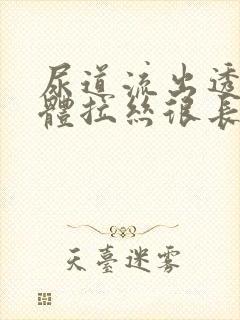 尿道流出透
體拉絲很長
天臺迷雾